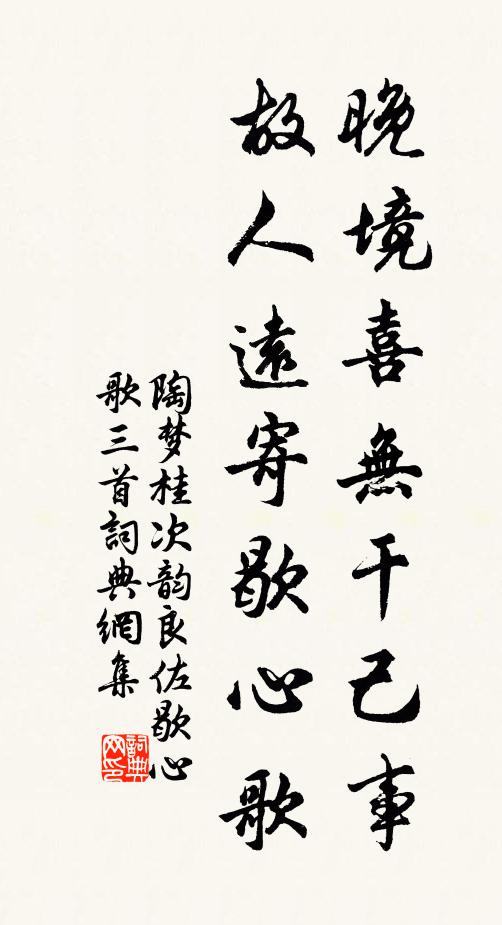 晚境喜無干己事
故人遠寄歇心歌
陶梦桂次韵良佐歇心
歌三首詞典網集
詞典
网印